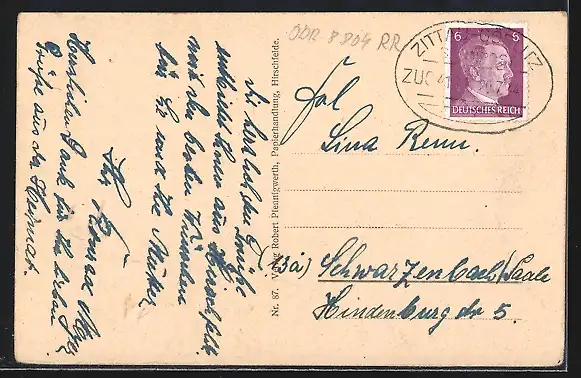 Die herzlichsten Grüße
sendet Ihnen aus Hirschfelde
mit den besten Wünschen
für Sie und Ihre Mutter
Ihr
Herzlichen Dank für Ihre lieben
Grüße aus der Heimat.
Nr. 87. Verlag Robert Pfennigwerth, Papierhandlung, Hirschfelde.
ODR 8 804 RR
ZITTAU-GÖRLITZ
ZUG
6 6
DEUTSCHES REICH
Frl.
Lina Renn.
(13a) Schwarzenbach/Saale
Hindenburgstr 5.